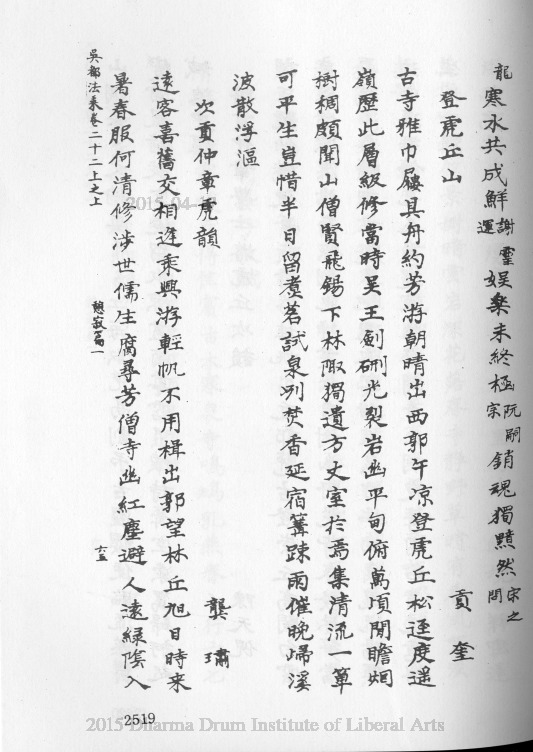 龍寒水共成鮮謝靈運娛樂未終極阮嗣宗銷魂獨黯然宋之問
登虎丘山 貢奎
古寺雅巾屨具舟約芳游朝晴出西郭午凉登虎丘松逕度遥
嶺歷此層級修當時吴王劍硎光裂岩幽平甸俯萬頃閒瞻烟
樹稠頗聞山僧賢飛錫下林陬獨遺方丈室於焉集清流一簞
可平生豈惜半日留煑茗試泉冽焚香延宿篝踈雨催晚歸溪
波散浮漚
次貢仲章虎韻 龔璛
遠客喜舊交相逢乘興游輕帆不用楫出郭望林丘旭日時来
暑春服何清修涉世儒生腐尋芳僧寺幽紅塵避人遠緑陰入
吳都法乘卷二十二上之上 憩寂篇一 六五
2519
2015-04-
2015 Dharma Drum Institute of Liberal Arts